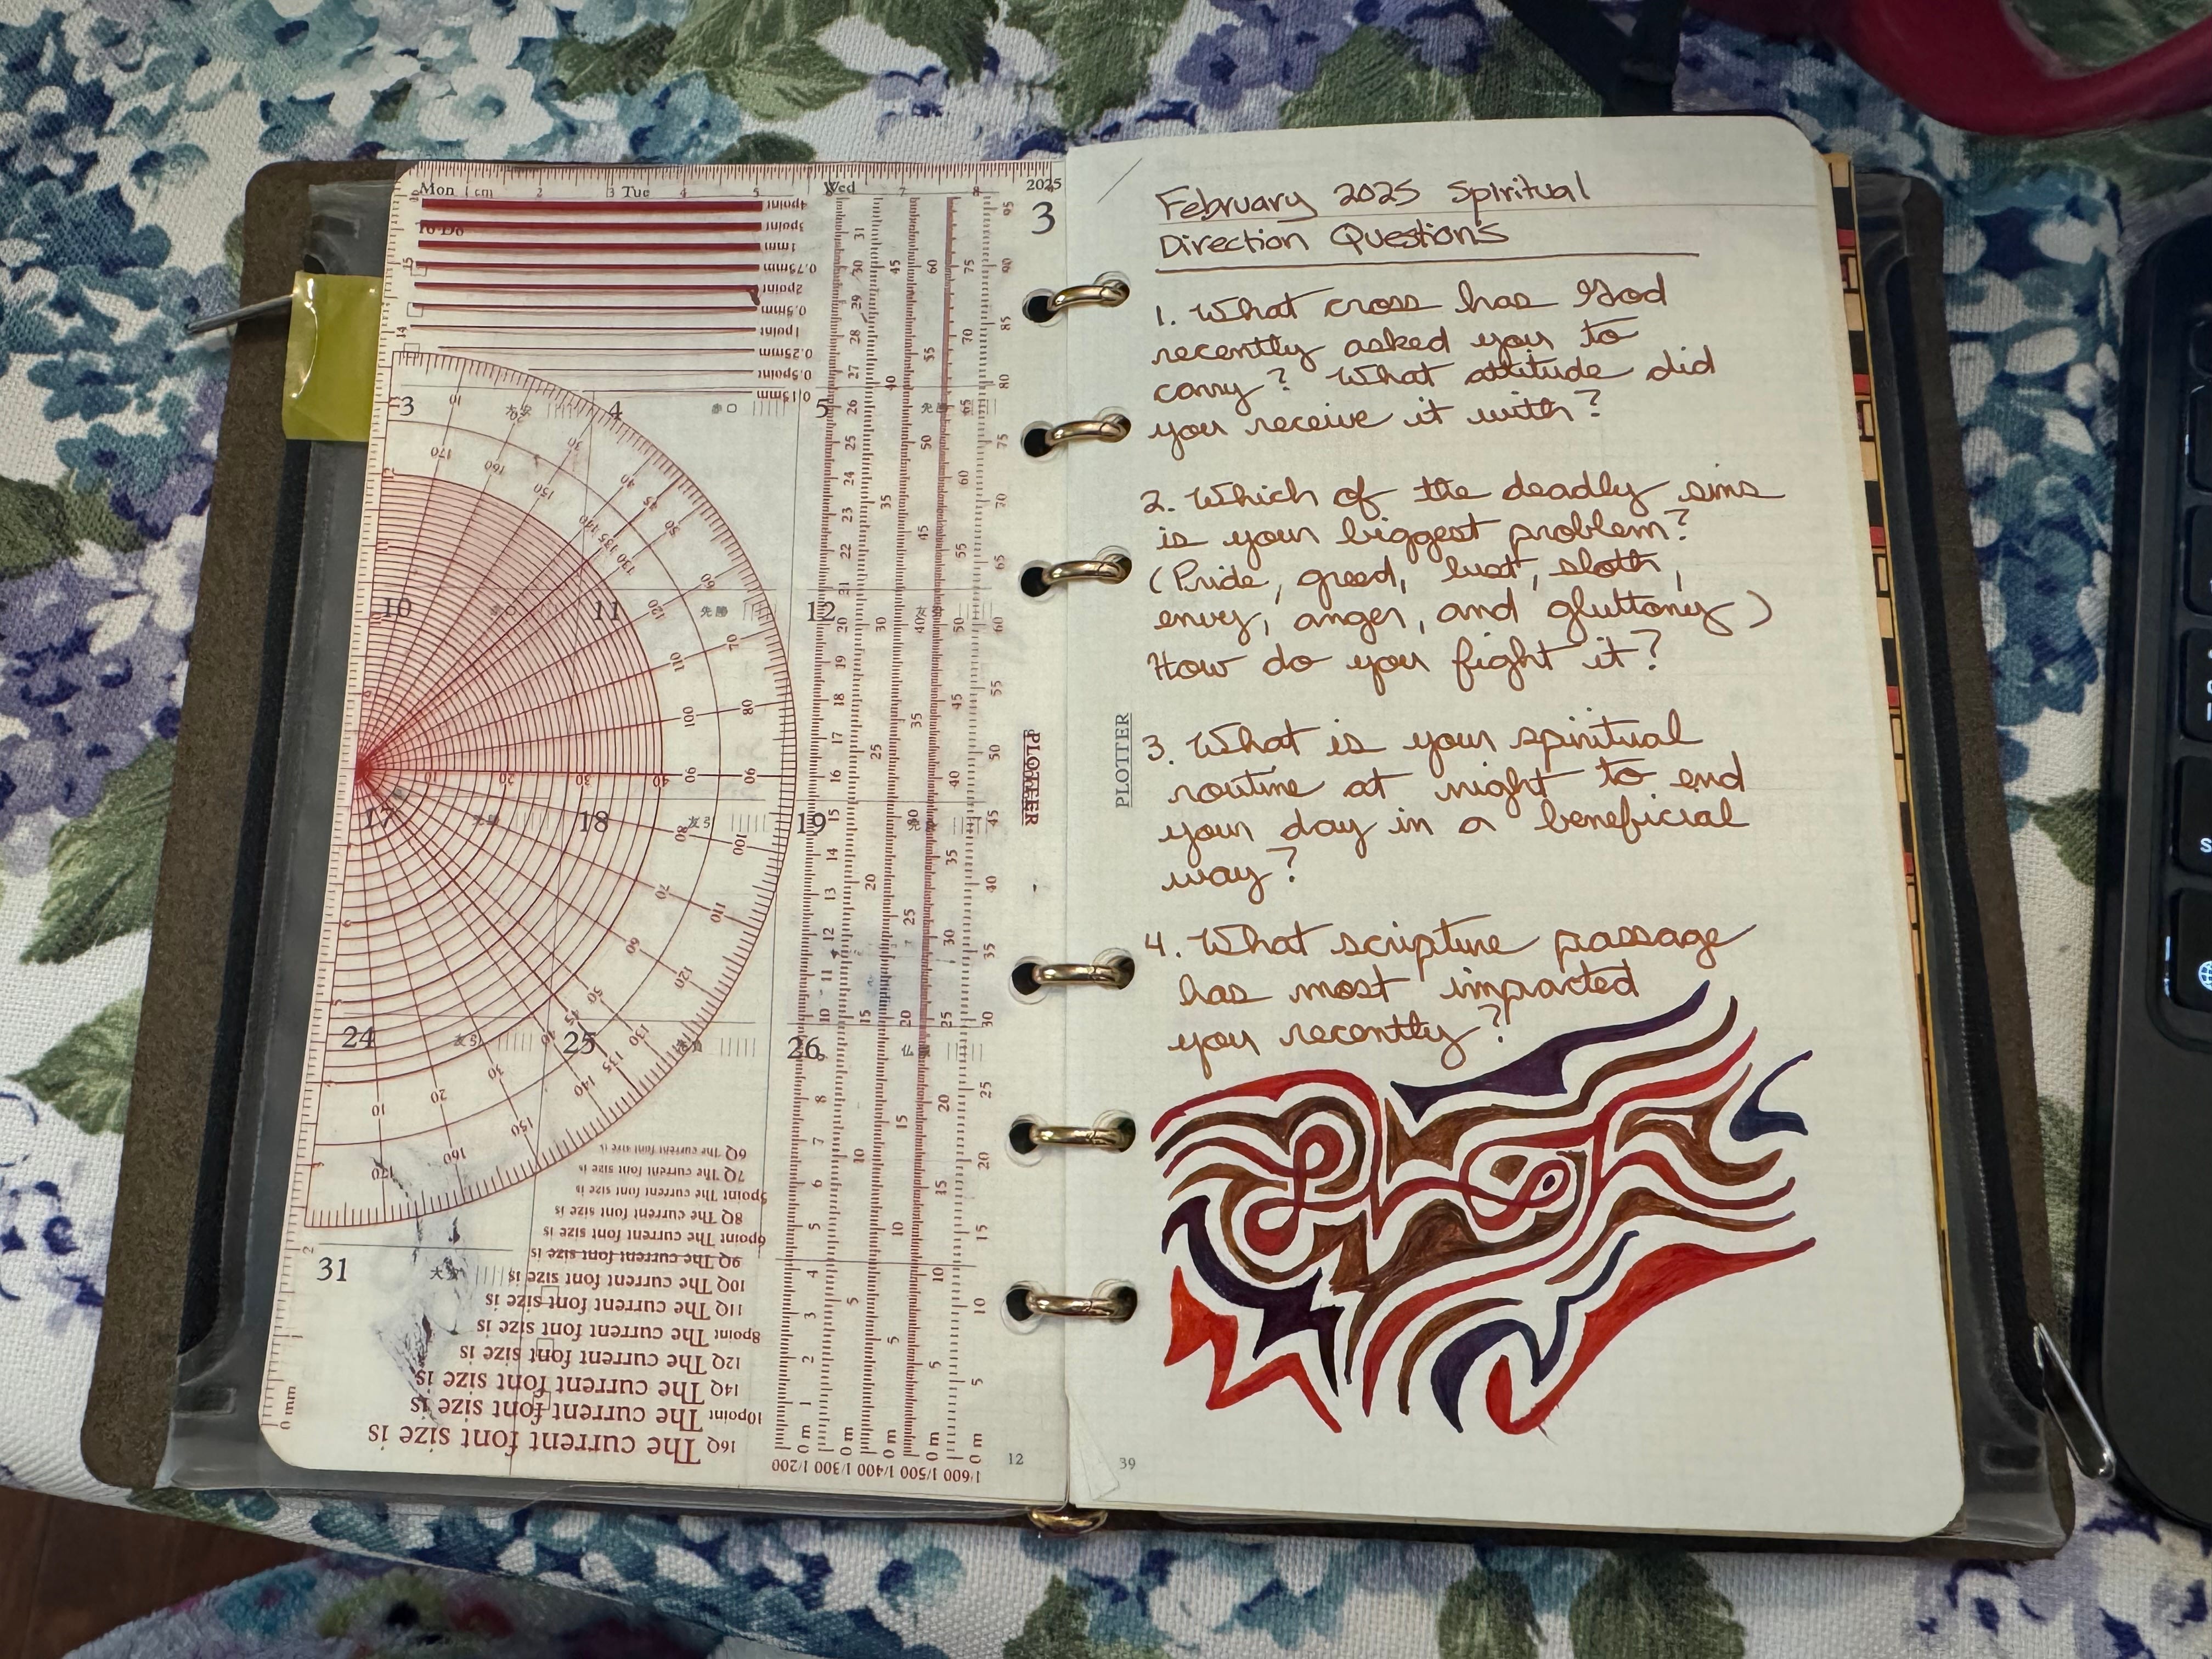 Mon 1 cm 2 3 Tue 4 5 Wed 7 8 2025
3
4point
3point
To Do
1mm
0.75mm
2point
0.5mm
1point
0.25mm
0.5point
0.15mm
3 大安 4 赤口 5 先勝
10 赤口 11 先勝 12 友引
17 先勝 18 友引 19
24 友引 25 26 仏滅
31 大安
6Q The current font size is
7Q The current font size is
5point The current font size is
8Q The current font size is
6point The current font size is
9Q The current font size is
10Q The current font size is
11Q The current font size is
8point The current font size is
12Q The current font size is
14Q The current font size is
10point The current font size is
16Q The current font size is
0 mm
0 m 0 m 0 m 0 m 0 m
1/200 1/300 1/400 1/500 1/600
PLOTTER
12
February 2025 Spiritual
Direction Questions
1. What cross has God
recently asked you to
carry? What attitude did
you receive it with?
2. Which of the deadly sins
is your biggest problem?
(Pride, greed, lust, sloth,
envy, anger, and gluttoney)
How do you fight it?
3. What is your spiritual
routine at night to end
your day in a beneficial
way?
4. What scripture passage
has most impacted
you recently?
PLOTTER
39